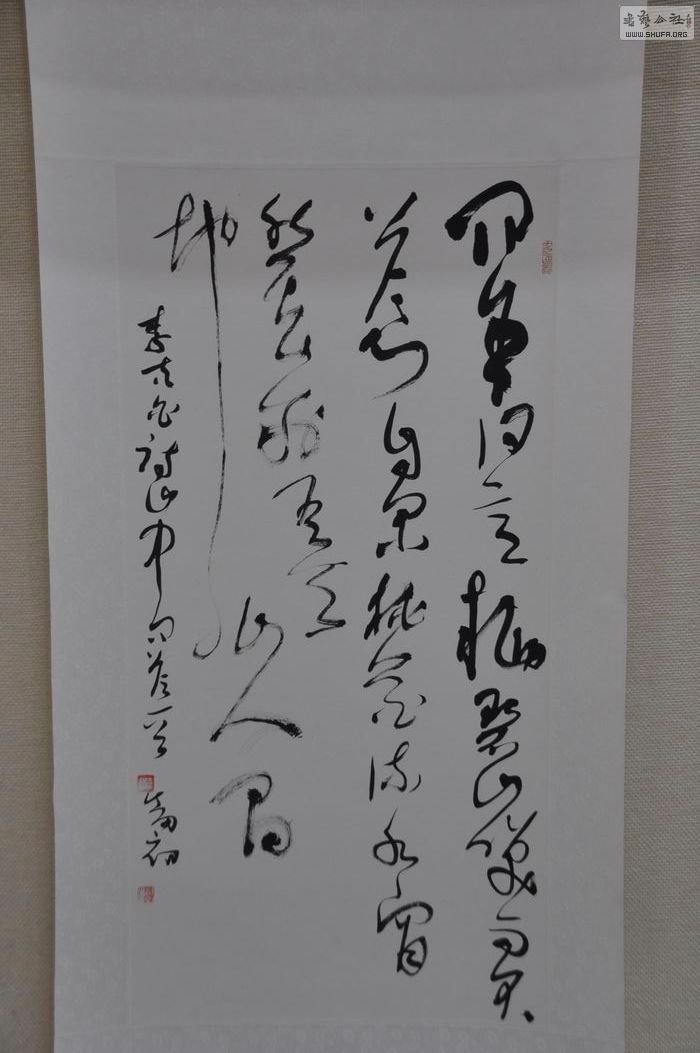 問余何意栖碧山笑而不
答心自閑桃花流水窅
然去別有天
地
非人間
李太白詩山中問答一首
初
書法公社
WWW.SHUFA.ORG